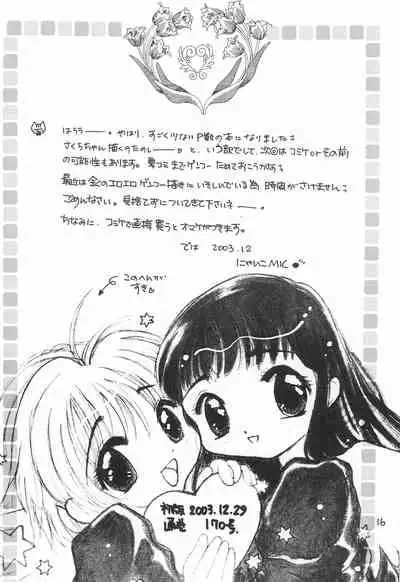 はうう───。やはり、すごく少ないP数の本になりました；
さくらちゃん描くのたのしー───。と、いう訳でして、次回はコミケorその前
の可能性もあります。夏コミまでゲンコーためておこうかな？
最近は金のエロエロゲンコー描きにいそしんでいる為、時間がさけません；
ごめんなさい。見捨てずについてきて下さいネ───。
ちなみに、コミケで直接買うとオマケがつきます。
では 2003.12
にゃいこMIC
このへんが
すき
初版 2003.12.29
通巻 170号
16